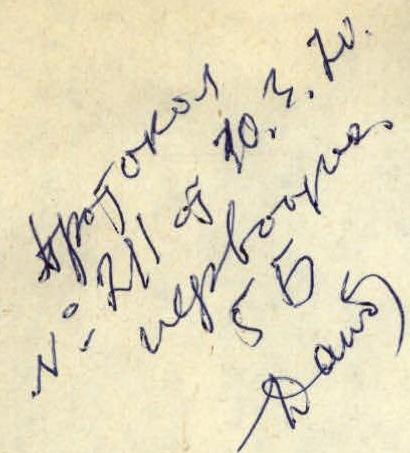 протокол
№ 211 от 30.3.70.
первоочер.
5Б